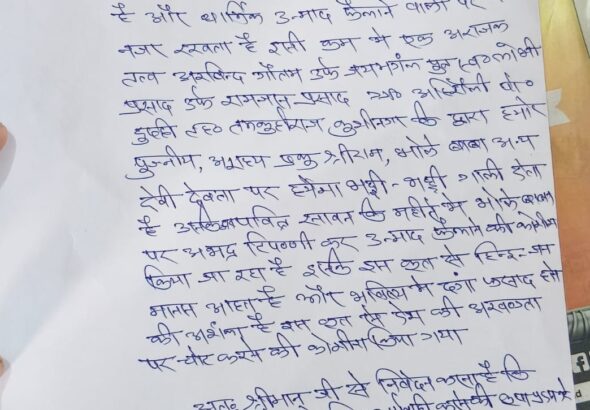 है और धार्मिक उन्माद फैलाने वालो पर
नजर रखता है इसी क्रम मे एक अराजक
तत्व अरविन्द गौतम उर्फ जयमंगल पुत्र स्व०
प्रसाद उर्फ रामनाथ प्रसाद पो०
तमकुहीराज कुशीनगर के द्वारा हमारे
पुज्नीय, अराध्य प्रभु श्रीराम, भोले बाबा अन्य
देवी देवता पर हमेशा भद्दी-भद्दी गाली देता
है पवित्र सावन के महीने मे भोले बाबा
पर अभद्र टिप्पणी कर उन्माद फैलाने की कोशीस
किया जा रहा है इनके इस कृत से हिन्दू जन
मानस आहत है और भविष्य मे दंगा फसाद होने
की आशंका है इस कृत से देश की अखण्डता
पर चोट करने की कोशीस किया गया
अतः श्रीमान् जी से निवेदन करना है कि